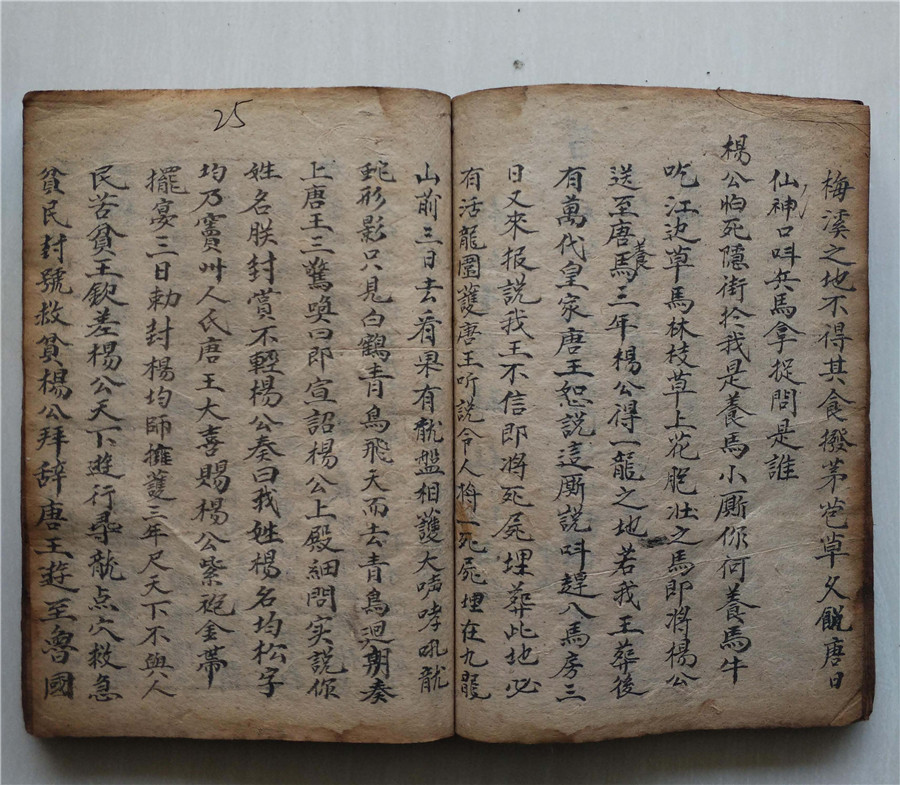 梅溪之地不得其食撥茅苞草久餓唐日
仙神口呌兵馬拿捉問是誰
楊公怕死隱街扵我是養馬小厮你何養馬牛
吃江边草馬林枝草上花肥壮之馬即將楊公
送至唐馬養三年楊公得一龍之地若我王葬後
有萬代皇家唐王恕說這厮説呌趕入馬房三
日又來报説我王不信即將死屍埋葬此地必
有活龍圍護唐王听説令人將一死屍埋在九
山前三日去看果有龍盤相護大哮吼龍
蛇形影只見白鶴青鳥飛天而去青鳥廻朝奏
上唐王三驚喚曰即宣詔楊公上殿細問实説你
姓名朕封賞不輕楊公奏曰我姓楊名均松字
均乃竇州人氏唐王大喜賜楊公紫袍金帯
擺宴三日勅封楊均師擁護三年尺天下不與人
民苦貧王欽差楊公天下遊行尋龍点穴救急
貧民封號救貧楊公拜辞唐王遊至魯國
25